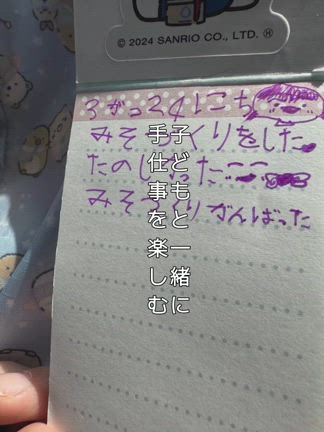 © 2024 SANRIO CO., LTD. Ⓗ
3がつ24にち
みそづくりをした
たのしかった
みそづくりがんばった
子どもと一緒に
手仕事を楽しむ